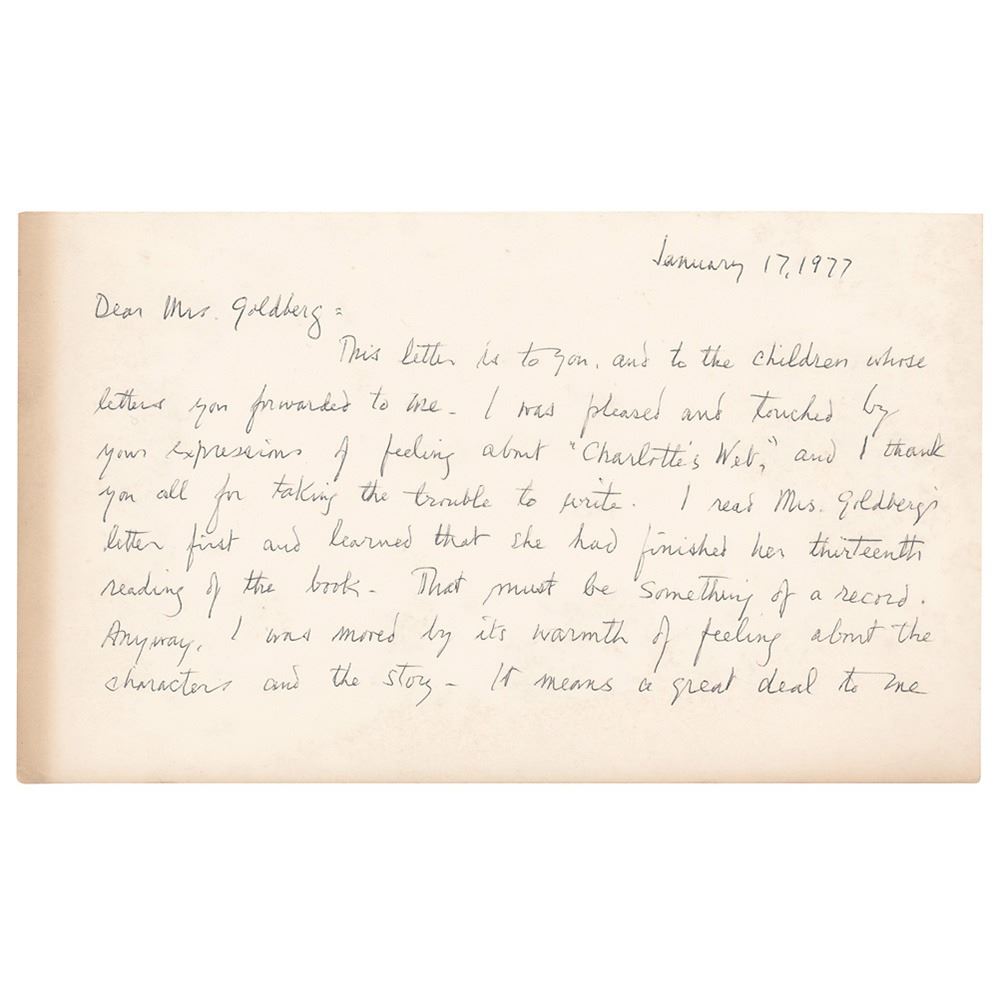 January 17, 1977
Dear Mrs. Goldberg:
This letter is to you, and to the children whose
letters you forwarded to me. I was pleased and touched by
your expressions of feeling about "Charlotte's Web," and I thank
you all for taking the trouble to write. I read Mrs. Goldberg's
letter first and learned that she had finished her thirteenth
reading of the book. That must be something of a record.
Anyway, I was moved by its warmth of feeling about the
characters and the story. It means a great deal to me